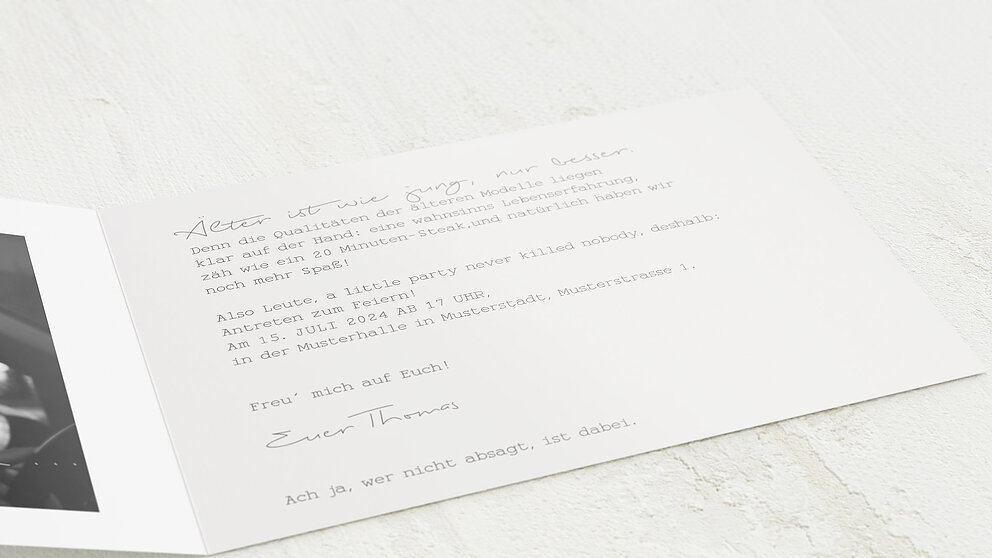 Älter ist wie jung, nur besser.
Denn die Qualitäten der älteren Modelle liegen
klar auf der Hand: eine wahnsinns Lebenserfahrung,
zäh wie ein 20 Minuten-Steak,und natürlich haben wir
noch mehr Spaß!
Also Leute, a little party never killed nobody, deshalb:
Antreten zum Feiern!
Am 15. JULI 2024 AB 17 UHR,
in der Musterhalle in Musterstadt, Musterstrasse 1.
Freu´ mich auf Euch!
Euer Thomas
Ach ja, wer nicht absagt, ist dabei.